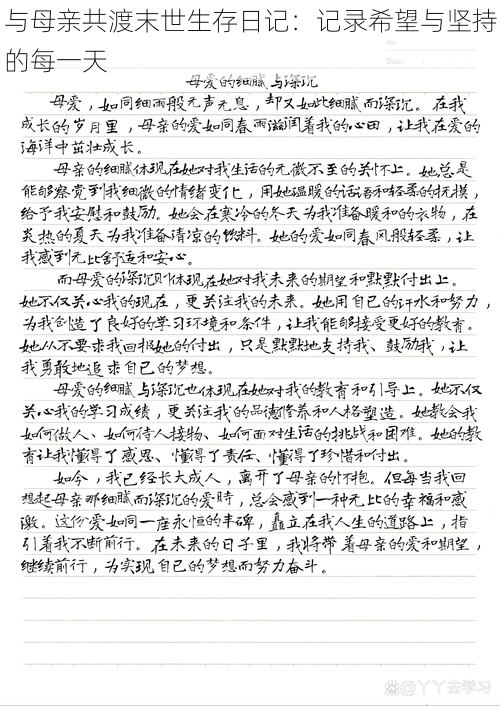 与母亲共渡末世生存日记：记录希望与坚持
的每一天
No.
Date.
母爱的细腻与深沉
母爱，如同细雨般无声无息，却又如此细腻而深沉。在我
成长的岁月里，母亲的爱如同春雨滋润着我的心田，让我在爱的
海洋中茁壮成长。
母亲的细腻体现在她对我生活的无微不至的关怀上。她总是
能够察觉到我细微的情绪变化，用她温暖的话语和轻柔的抚摸，
给予我安慰和鼓励。她会在寒冷的冬天为我准备暖和的衣物，在
炎热的夏天为我准备清凉的饮料。她的爱如同春风般轻柔，让
我感到无比舒适和安心。
而母爱的深沉则体现在她对我未来的期望和默默付出上。
她不仅关心我的现在，更关注我的未来。她用自己的汗水和努力，
为我创造了良好的学习环境和条件，让我能够接受更好的教育。
她从不要求我回报她的付出，只是默默地支持我、鼓励我，让
我勇敢地追求自己的梦想。
母爱的细腻与深沉也体现在她对我的教育和引导上。她不仅
关心我的学习成绩，更关注我的品德修养和人格塑造。她教会我
如何做人、如何待人接物、如何面对生活的挑战和困难。她的教
育让我懂得了感恩、懂得了责任、懂得了珍惜和付出。
如今，我已经长大成人，离开了母亲的怀抱。但每当我回
想起母亲那细腻而深沉的爱时，总会感到一种无比的幸福和感
激。这份爱如同一座永恒的丰碑，矗立在我人生的道路上，指
引着我不断前行。在未来的日子里，我将带着母亲的爱和期望，
继续前行，为实现自己的梦想而努力奋斗。
@丫丫去学习